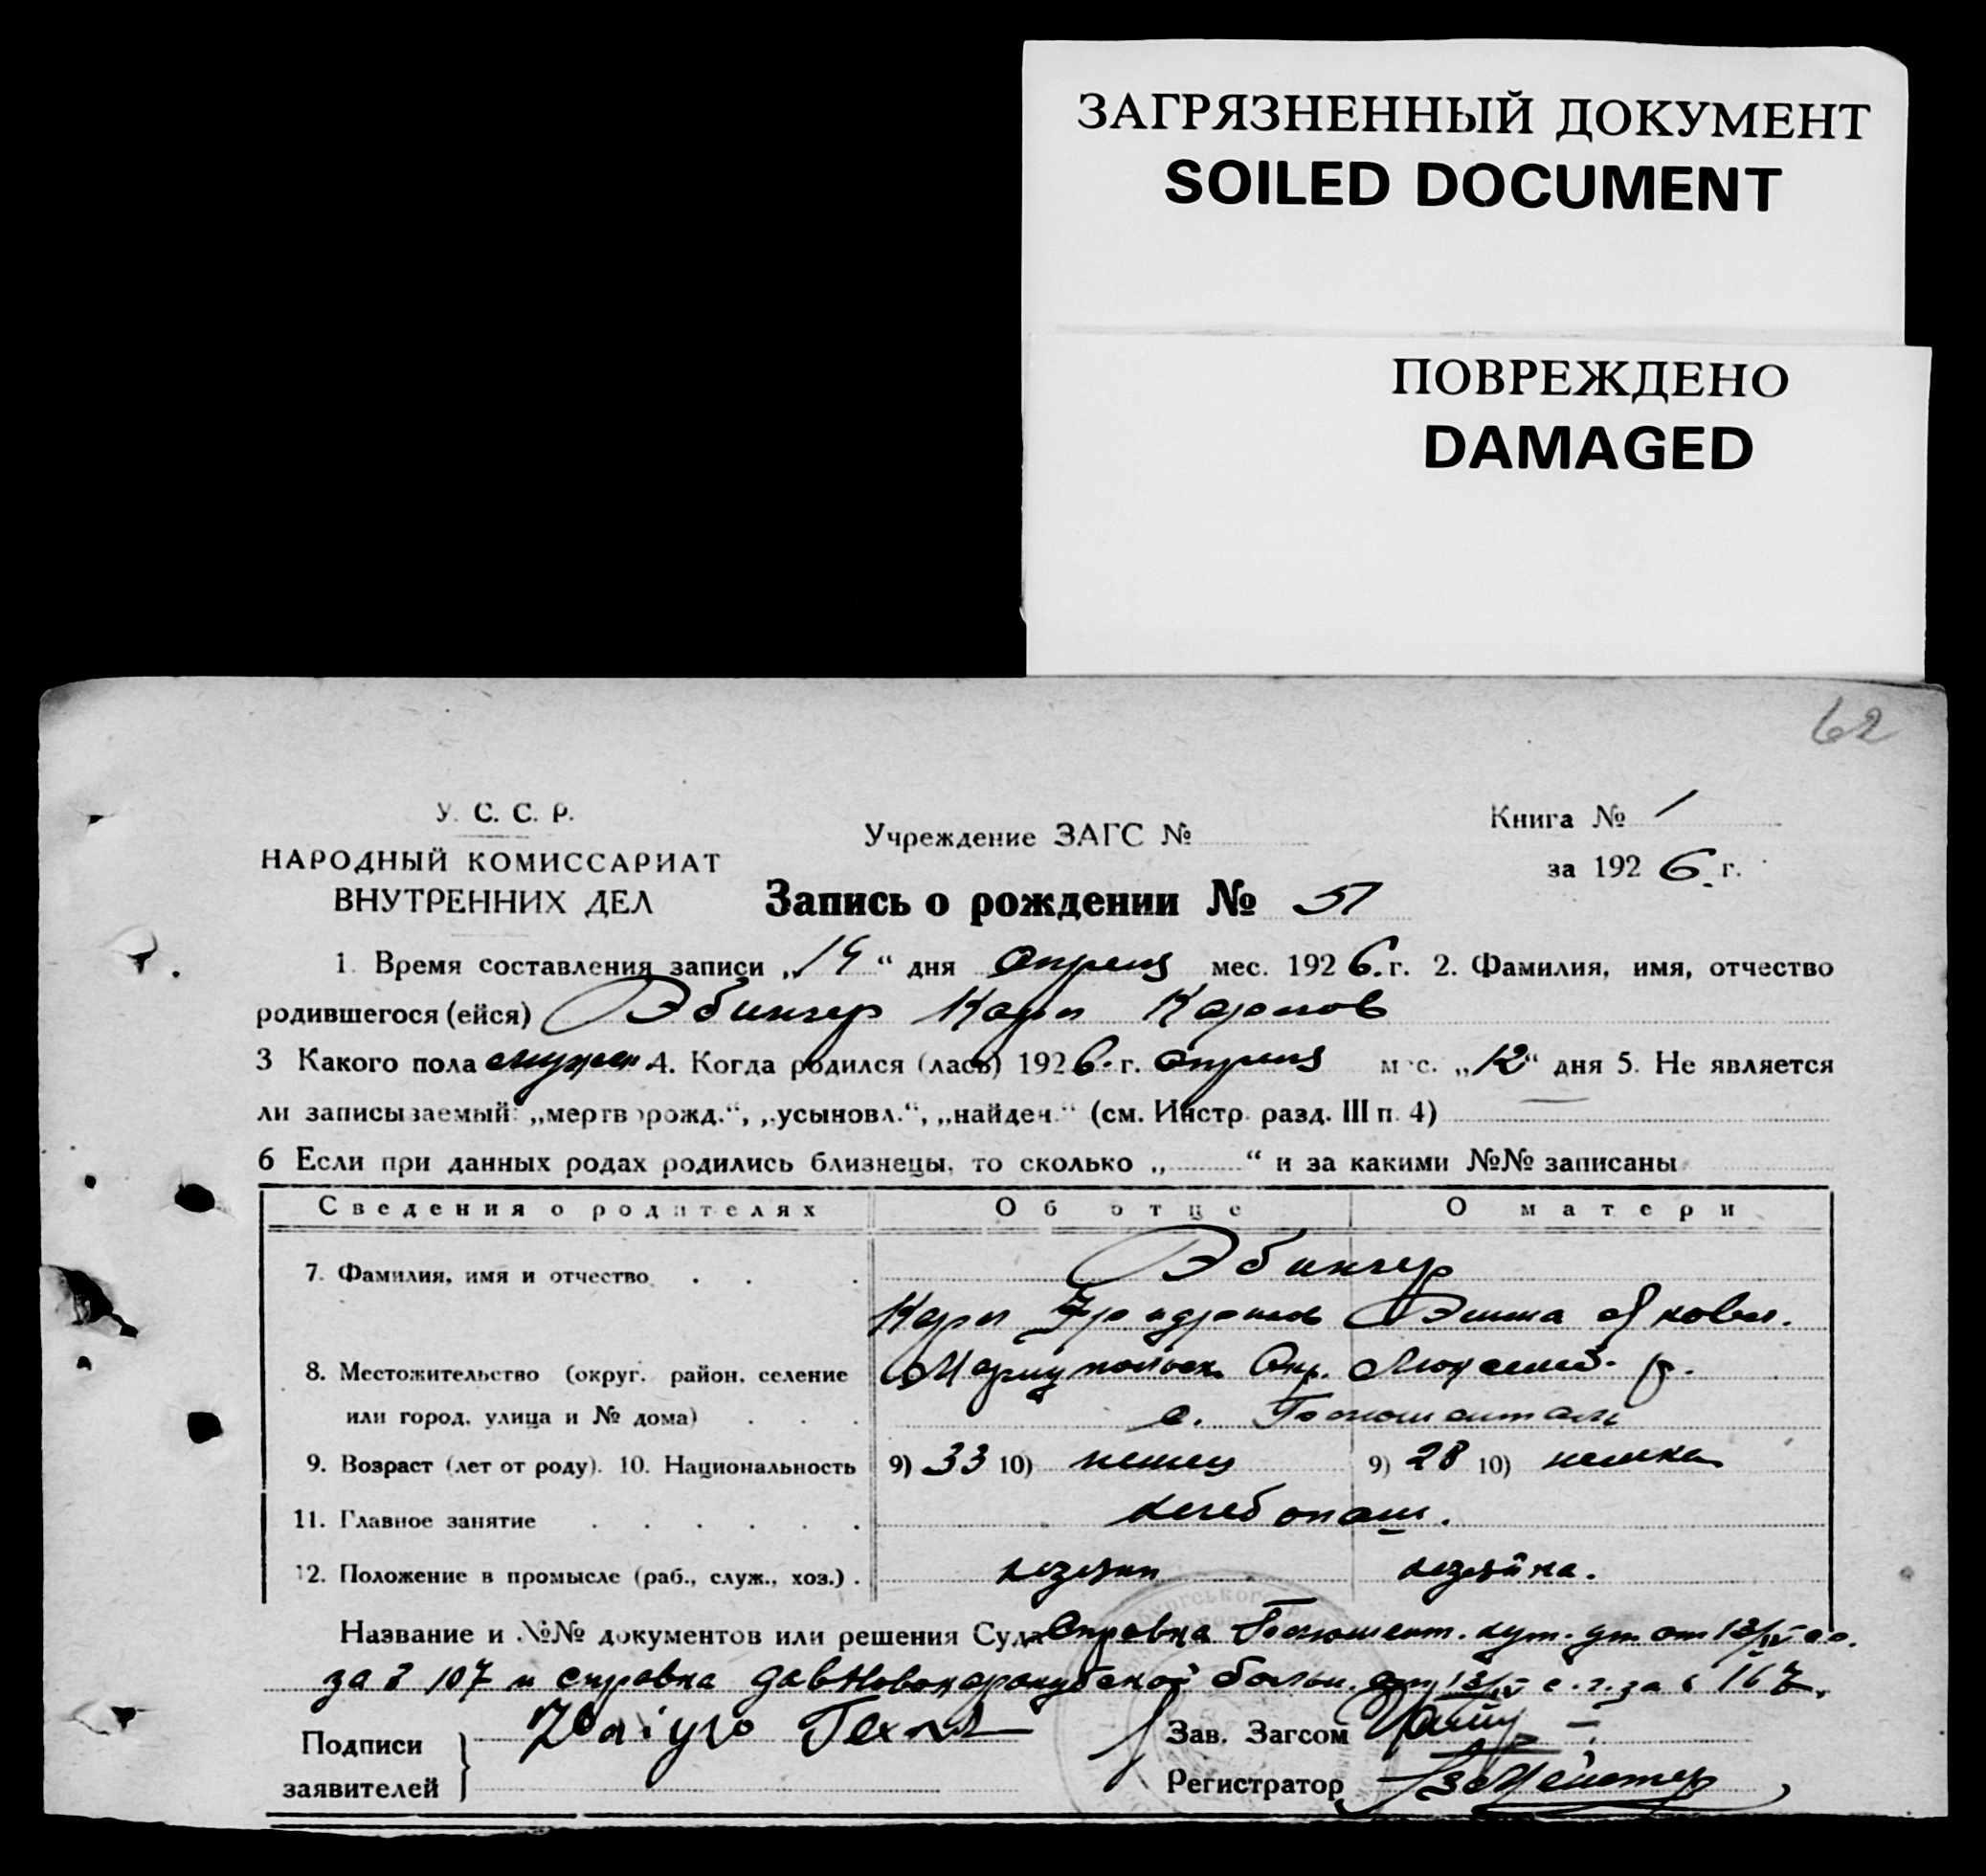 ЗАГРЯЗНЕННЫЙ ДОКУМЕНТ
SOILED DOCUMENT
ПОВРЕЖДЕНО
DAMAGED
62
У. С. С. Р.
НАРОДНЫЙ КОМИССАРИАТ
ВНУТРЕННИХ ДЕЛ
Учреждение ЗАГС №
Книга № 1
за 1926 г.
Запись о рождении № 51
1. Время составления записи „14“ дня апреля мес. 1926. г. 2. Фамилия, имя, отчество
родившегося (ейся) Эбингер Карл Карлов
3 Какого пола мужск 4. Когда родился (лась) 1926. г. апреля мес. „12“ дня 5. Не является
ли записываемый: „мертворожд.“, „усыновл.“, „найден.“ (см. Инстр. разд. III п. 4) —
6 Если при данных родах родились близнецы, то сколько „ “ и за какими №№ записаны
Сведения о родителях Об отце О матери
7. Фамилия, имя и отчество . . . Эбингер
Карл Эмма Яковл.
8. Местожительство (округ, район, селение Мариупольск. Окр. р.
или город, улица и № дома) . . . с.
9. Возраст (лет от роду). 10. Национальность 9) 33 10) немец 9) 28 10) немка
11. Главное занятие . . . . . . хлебопаш.
12. Положение в промысле (раб., служ., хоз.) . хозяин хозяйка.
Название и №№ документов или решения Суда Справка от 13/IV
за № 107 и справка больн. от 13/IV с. г. за № 167.
Подписи
заявителей
Зав. Загсом
Регистратор